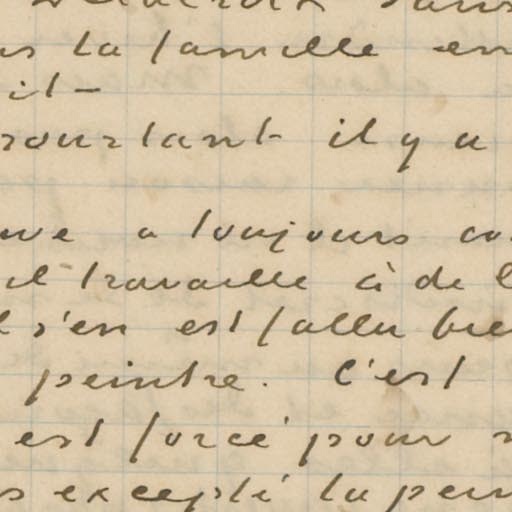 la famille en
it -
pourtant il y a
a toujours
il travaille à de
s'en est fallu
peintre. C'est
est forcé pour
excepté la pein